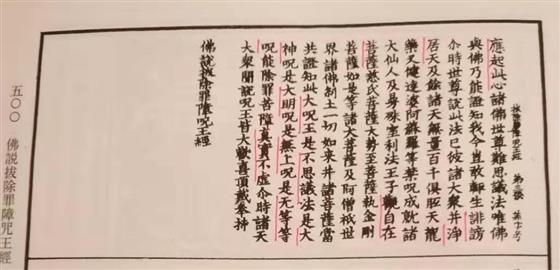 拔除罪障呪王經 第三張
應起此心諸佛世尊難思議法唯佛
與佛乃能證知我今豈敢輒生誹謗
尒時世尊說此法已彼諸大衆并淨
居天及餘諸天無量百千俱胝天龍
藥叉健達婆阿蘇羅等禁呪成就諸
大仙人及曼殊室利法王子觀自在
菩薩慈氏菩薩大勢至菩薩執金剛
菩薩如是等諸大菩薩及阿僧祇世
界諸佛剎土一切如來并諸菩薩當
共證知此大呪王是不思議法是大
神呪是大明呪是無上呪是無等等
呪能除罪苦障真實不虛尒時諸天
大衆聞說呪王皆大歡喜頂戴奉持
佛說拔除罪障呪王經
五〇〇 佛説拔除罪障咒王經